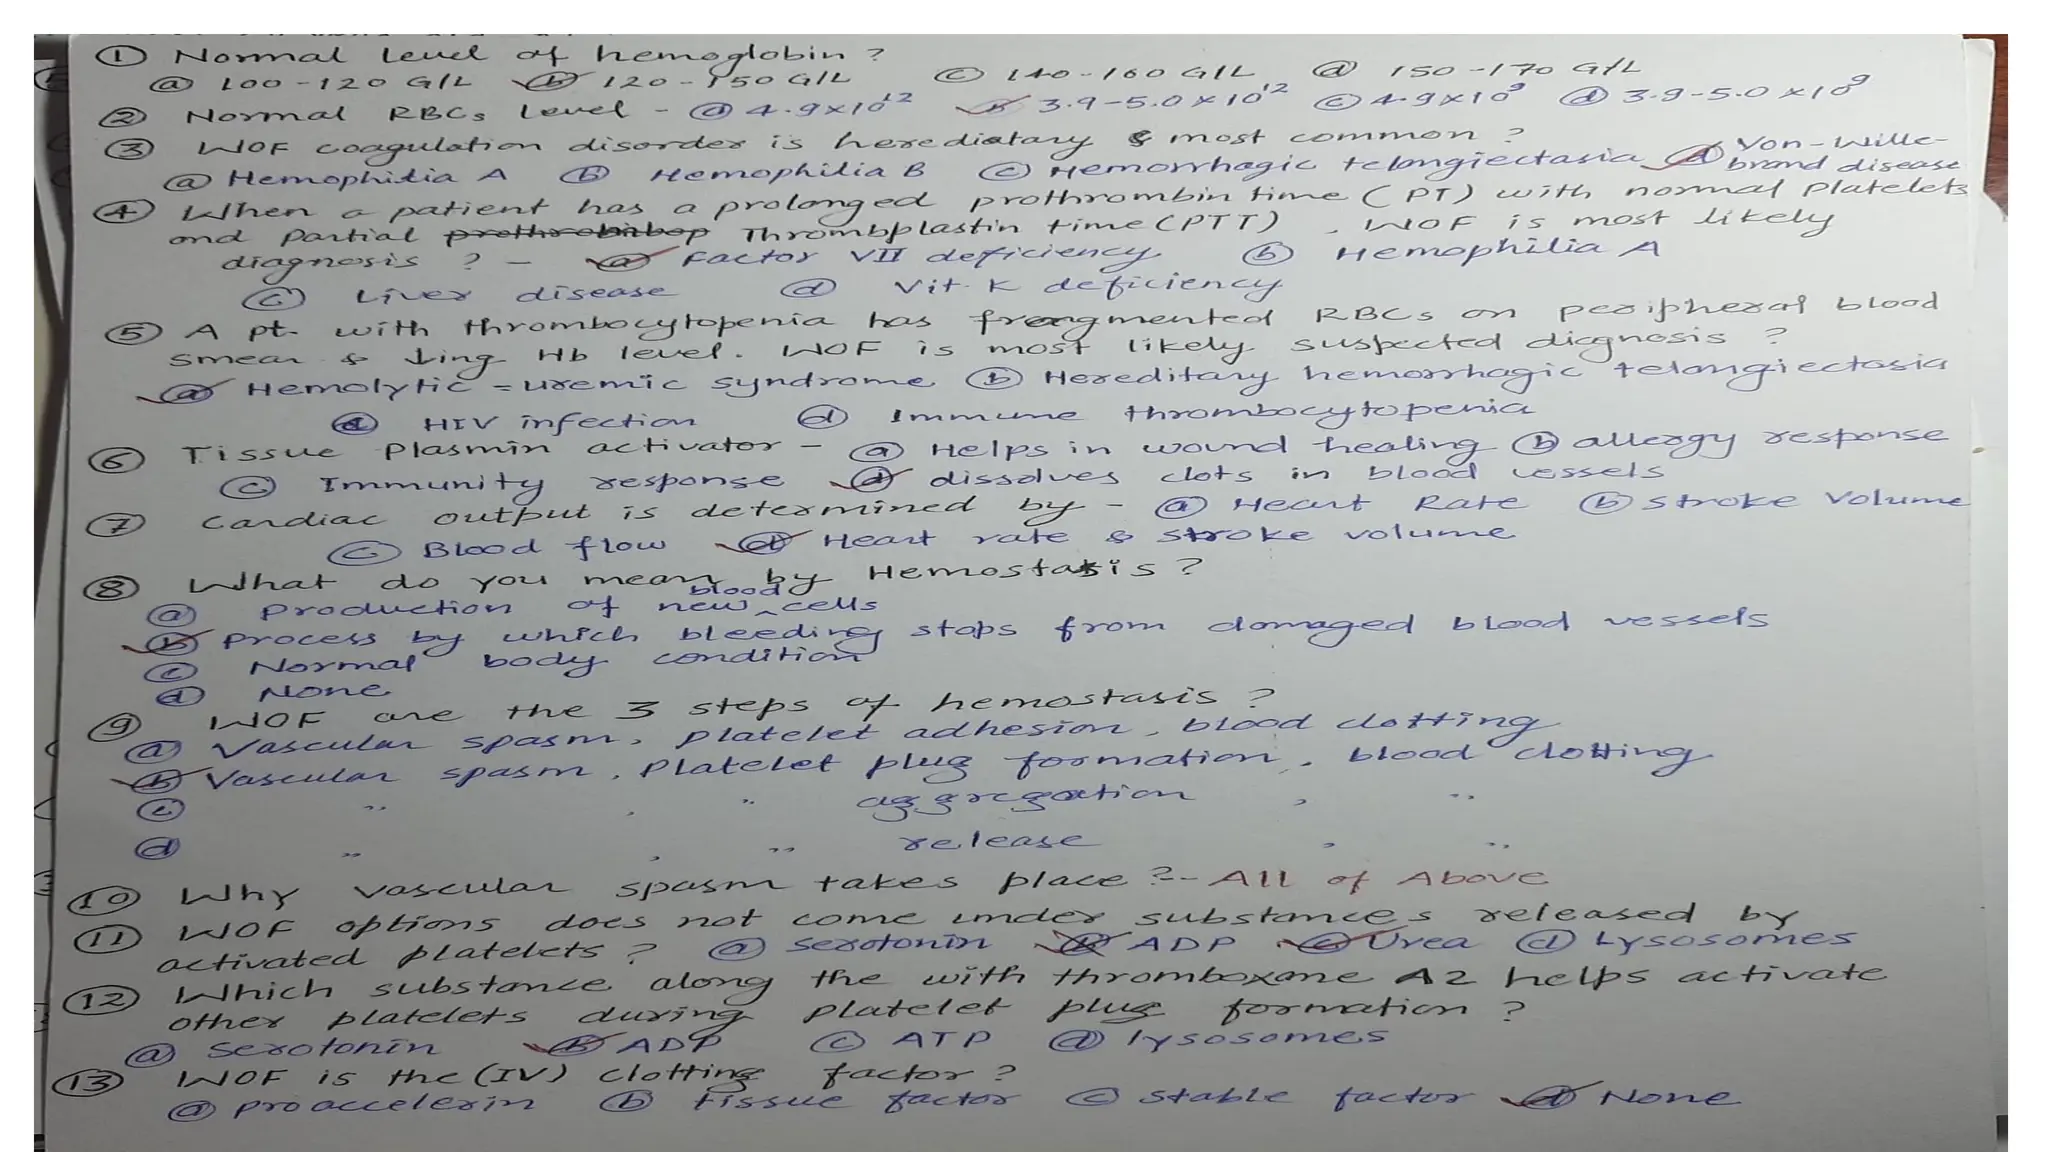 ① Normal level of hemoglobin ?
ⓐ 100-120 G/L ⓑ 120-150 G/L ⓒ 140-160 G/L ⓓ 150-170 G/L
② Normal RBCs Level - ⓐ 4.9x10¹² ⓑ 3.9-5.0x10¹² ⓒ 4.9x10⁹ ⓓ 3.9-5.0x10⁹
③ WOF coagulation disorder is herediatary & most common ?
ⓐ Hemophilia A ⓑ Hemophilia B ⓒ Hemorrhagic telangiectasia ⓓ Von-Wille-
brand disease
④ When a patient has a prolonged prothrombin time (PT) with normal Platelets
and Partial Thrombplastin time (PTT) , WOF is most likely
diagnosis ? - ⓐ Factor VII deficiency ⓑ Hemophilia A
ⓒ Liver disease ⓓ Vit. K deficiency
⑤ A pt. with thrombocytopenia has fragmented RBCs on peripheral blood
smear & ↓ing Hb level. WOF is most likely suspected diagnosis ?
ⓐ Hemolytic-uremic syndrome ⓑ Hereditary hemorrhagic telangiectasia
ⓒ HIV infection ⓓ Immune thrombocytopenia
⑥ Tissue Plasmin activator - ⓐ Helps in wound healing ⓑ allergy response
ⓒ Immunity response ⓓ dissolves clots in blood vessels
⑦ Cardiac output is determined by - ⓐ Heart Rate ⓑ stroke Volume
ⓒ Blood flow ⓓ Heart rate & stroke volume
⑧ What do you mean by Hemostasis ?
ⓐ Production of new blood cells
ⓑ Process by which bleeding stops from damaged blood vessels
ⓒ Normal body condition
ⓓ None
⑨ WOF are the 3 steps of hemostasis ?
ⓐ Vascular spasm, platelet adhesion, blood clotting
ⓑ Vascular spasm, Platelet plug formation, blood clotting
ⓒ " , " aggregation , "
ⓓ " , " release , "
⑩ Why vascular spasm takes place ?- All of Above
⑪ WOF options does not come under substances released by
activated platelets ? ⓐ serotonin ⓑ ADP ⓒ Urea ⓓ Lysosomes
⑫ Which substance along the with thromboxane A2 helps activate
other platelets during platelet plug formation ?
ⓐ serotonin ⓑ ADP ⓒ ATP ⓓ lysosomes
⑬ WOF is the (IV) clotting factor ?
ⓐ proaccelerin ⓑ tissue factor ⓒ stable factor ⓓ None